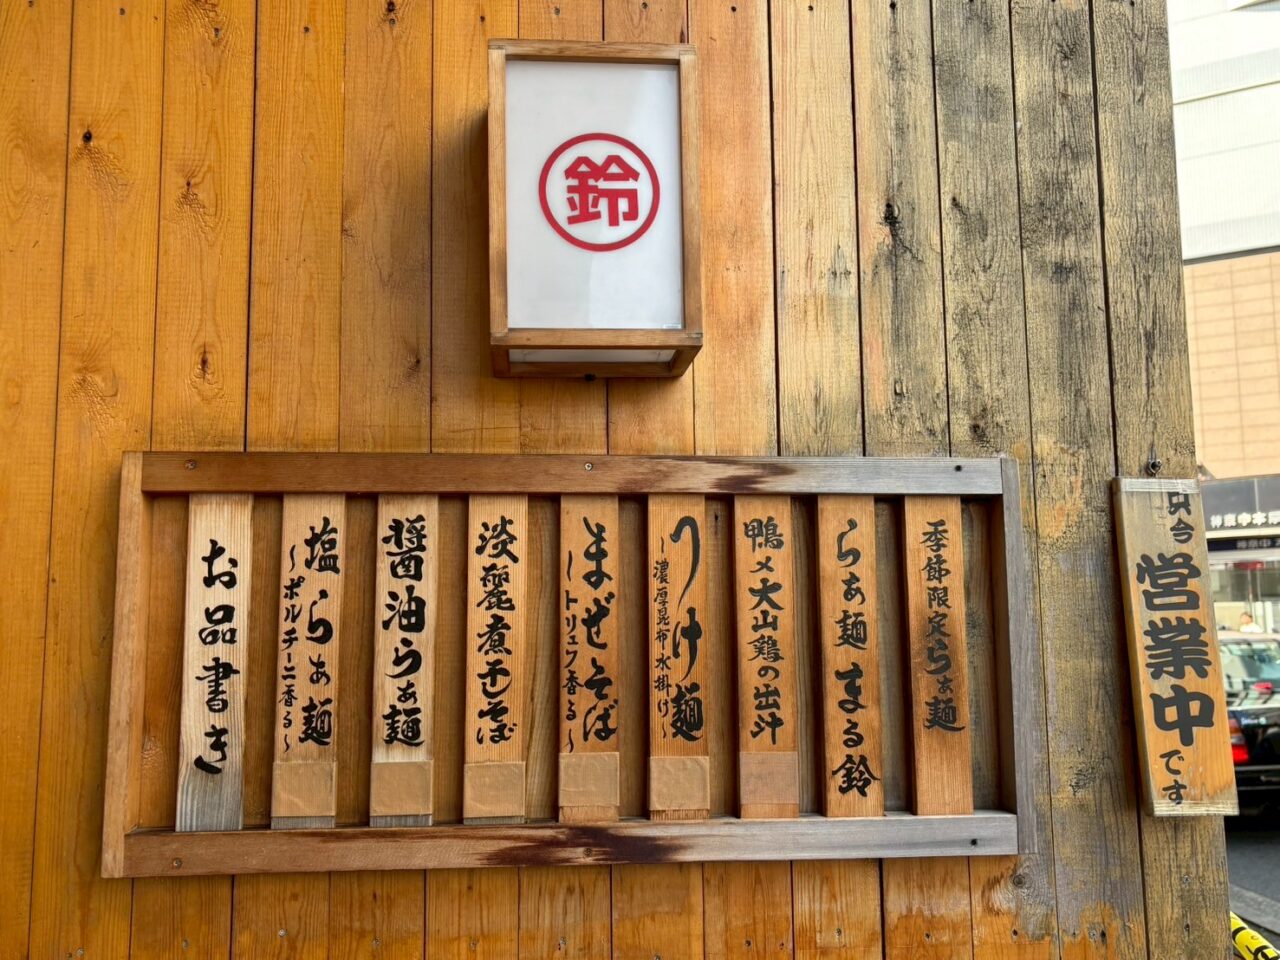 鈴
季節限定らぁ麺
らぁ麺 まる鈴
鴨〆大山鶏の出汁
つけ麺
~濃厚昆布水掛け~
まぜそば
~トリュフ香る~
淡麗煮干しそば
醤油らぁ麺
塩らぁ麺
~ポルチーニ香る~
お品書き
只今
営業中
です